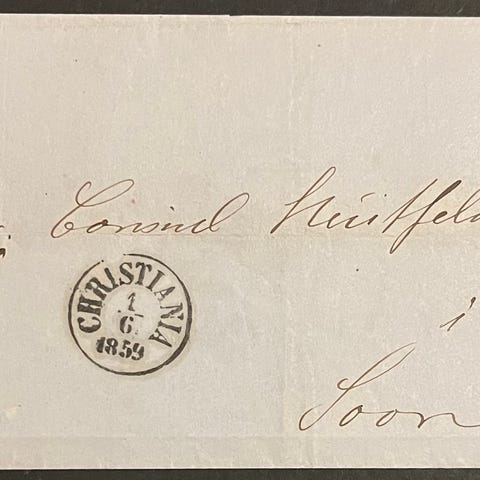 Consul Huitfeld
i
Soon
CHRISTIANIA
1
6
1859